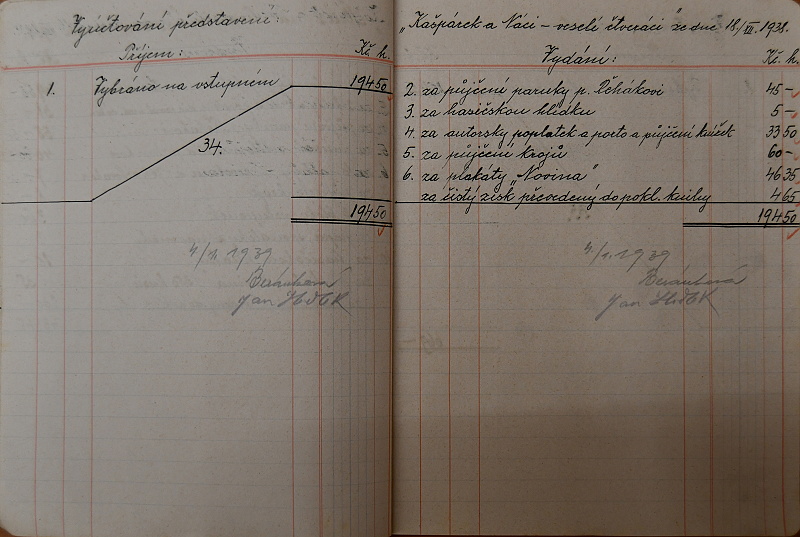 Vyúčtování představení:
Příjem:
Kč. h.
1. Vybráno na vstupném 194 50
34.
194 50
4/1. 1939
Jan
„Kašpárek a Náci – veselí čtveráci“ ze dne 18./XII. 1938.
Vydání: Kč. h.
2. za půjčení paruky p. Řehákovi 45 –
3. za hasičskou hlídku 5 –
4. za autorský poplatek a porto a půjčení knížek 33 50
5. za půjčení krojů 60 –
6. za plakáty „Novina“ 46 35
za čistý zisk převedený do pokl. knihy 4 65
194 50
4/1. 1939
Jan